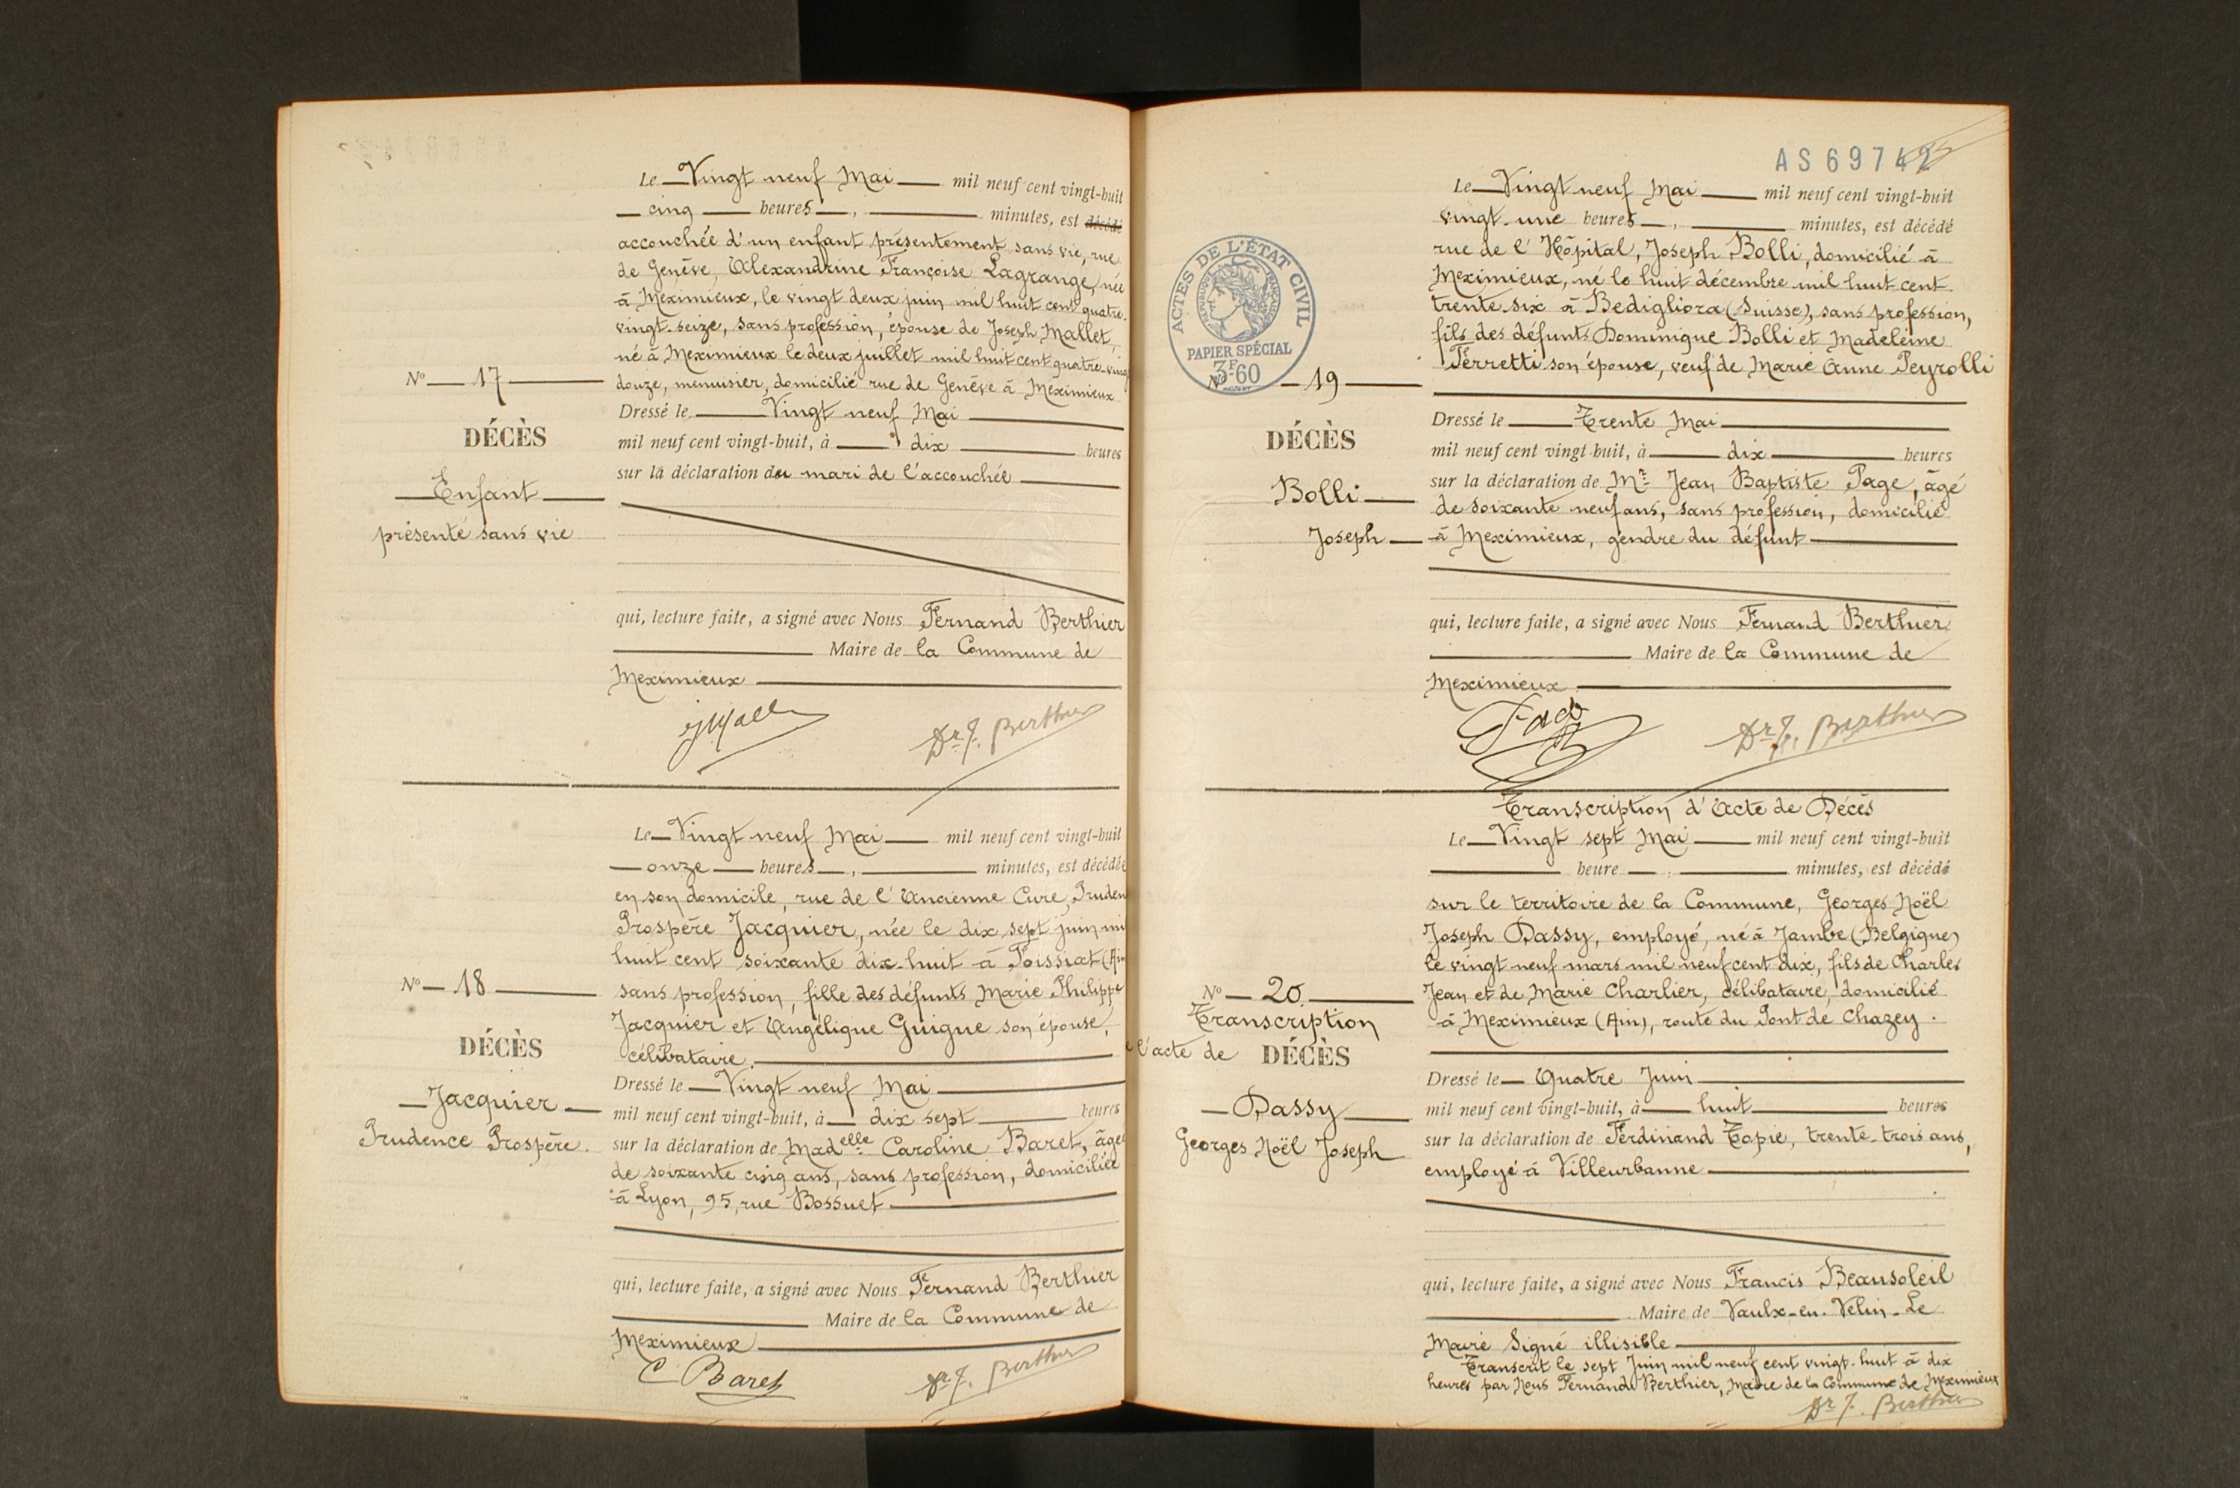 Le Vingt neuf Mai mil neuf cent vingt-huit
cinq heures, minutes, est décédé
accouchée d'un enfant présentement sans vie, rue
de Genève, Alexandrine Françoise Lagrange, née
à Meximieux, le vingt deux juin mil huit cent quatre-
vingt-seize, sans profession, épouse de Joseph Mallet,
né à Meximieux le deux juillet mil huit cent quatre-vingt
douze, menuisier, domicilié rue de Genève à Meximieux
Dressé le Vingt neuf Mai
mil neuf cent vingt-huit, à dix heures
sur la déclaration du mari de l'accouchée
qui, lecture faite, a signé avec Nous Fernand Berthier
Maire de la Commune de
Meximieux
Dr F. Berthier
N° 17
DÉCÈS
Enfant
présenté sans vie
Le Vingt neuf Mai mil neuf cent vingt-huit
onze heures, minutes, est décédée
en son domicile, rue de l'Ancienne Cure, Pruden
Prospère Jacquier, née le dix sept juin mi
huit cent soixante dix-huit à Poissiat (Ain
sans profession, fille des défunts Marie Philippe
Jacquier et Angélique Guigue son épouse,
célibataire.
Dressé le Vingt neuf Mai
mil neuf cent vingt-huit, à dix sept heures
sur la déclaration de Madelle Caroline Baret, âgée
de soixante cinq ans, sans profession, domiciliée
à Lyon, 95, rue Bossuet
qui, lecture faite, a signé avec Nous Fernand Berthier
Maire de la Commune de
Meximieux
C Baret
Dr F. Berthier
N° 18
DÉCÈS
Jacquier
Prudence Prospère.
AS 69742
ACTES DE L'ÉTAT CIVIL
PAPIER SPÉCIAL
3F60
Le Vingt neuf Mai mil neuf cent vingt-huit
vingt-une heures, minutes, est décédé
rue de l'Hôpital, Joseph Bolli, domicilié à
Meximieux, né le huit décembre mil huit cent
trente-six à Bedigliora (Suisse), sans profession,
fils des défunts Dominique Bolli et Madeleine
Ferretti son épouse, veuf de Marie Anne Peyrolli
Dressé le Trente Mai
mil neuf cent vingt-huit, à dix heures
sur la déclaration de Mr Jean Baptiste Page, âgé
de soixante neuf ans, sans profession, domicilié
à Meximieux, gendre du défunt
qui, lecture faite, a signé avec Nous Fernand Berthier
Maire de la Commune de
Meximieux
Dr F. Berthier
N° 19
DÉCÈS
Bolli
Joseph
Transcription d'Acte de Décès
Le Vingt sept Mai mil neuf cent vingt-huit
heure, minutes, est décédé
sur le territoire de la Commune, Georges Noël
Joseph Dassy, employé, né à Jambe (Belgique)
le vingt neuf mars mil neuf cent dix, fils de Charles
Jean et de Marie Charlier, célibataire, domicilié
à Meximieux (Ain), route du Pont de Chazey.
Dressé le Quatre Juin
mil neuf cent vingt-huit, à huit heures
sur la déclaration de Ferdinand Tapie, trente-trois ans,
employé à Villeurbanne
qui, lecture faite, a signé avec Nous Francis Beausoleil
Maire de Vaulx-en-Velin - Le
Maire Signé illisible
Transcrit le sept Juin mil neuf cent vingt-huit à dix
heures par Nous Fernand Berthier, Maire de la Commune de Meximieux
Dr F. Berthier
N° 20
Transcription
l'acte de DÉCÈS
Dassy
Georges Noël Joseph